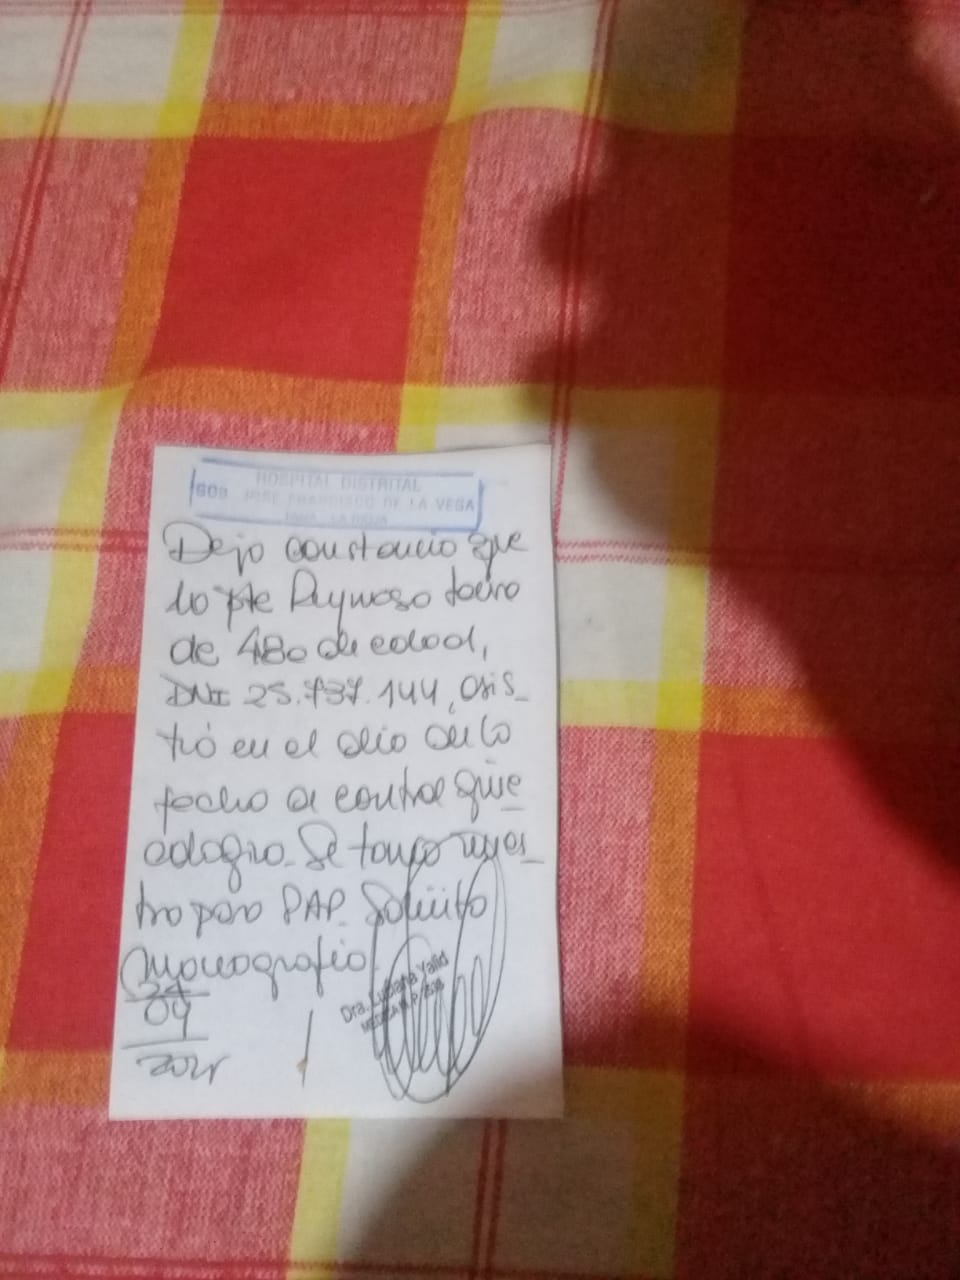 HOSPITAL DISTRITAL
GOB. JOSE FRANCISCO DE LA VEGA
TAMA - LA RIOJA
Dejo constancia que
la pte Reynoso
de 48a de edad,
DNI 25.737.144, asis_
tió en el día de la
fecha a control gine_
cologico. Se tomo mues_
tra para PAP. Solicito
Mamografia
24
09
Dra. Luciana Yalid
MEDICA M.P.